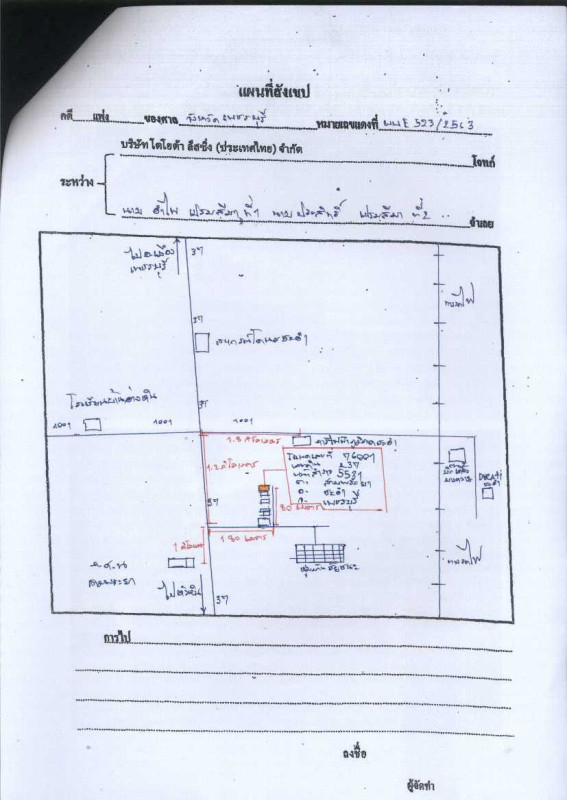 แผนที่สังเขป
คดี แพ่ง ของศาล จังหวัดเพชรบุรี หมายเลขแดงที่ ผบE 523/2563
บริษัท โตโยต้า ลีสซิ่ง (ประเทศไทย) จำกัด โจทก์
ระหว่าง
นาย อำไพ ที่1 นาย ประสิทธิ์ ที่2 จำเลย
ไปอ.เมือง
เพชรบุรี
37
37
สหกรณ์โคนมชะอำ
ทางรถไฟ
37
1001 1001 1001
1.8 กิโลเมตร
การไฟฟ้าภูมิภาคชะอำ
1.2 กิโลเมตร
โฉนดเลขที่ 76001
เลขที่ดิน 237
หน้าสำรวจ 5531
ต. สามพระยา
อ. ชะอำ
จ. เพชรบุรี
DUCATI
ชะอำ
37
80 เมตร
180 เมตร
1 กิโลเมตร
สามพระยา
ทางรถไฟ
ไปหัวหิน
37
การไป
ลงชื่อ
ผู้จัดทำ